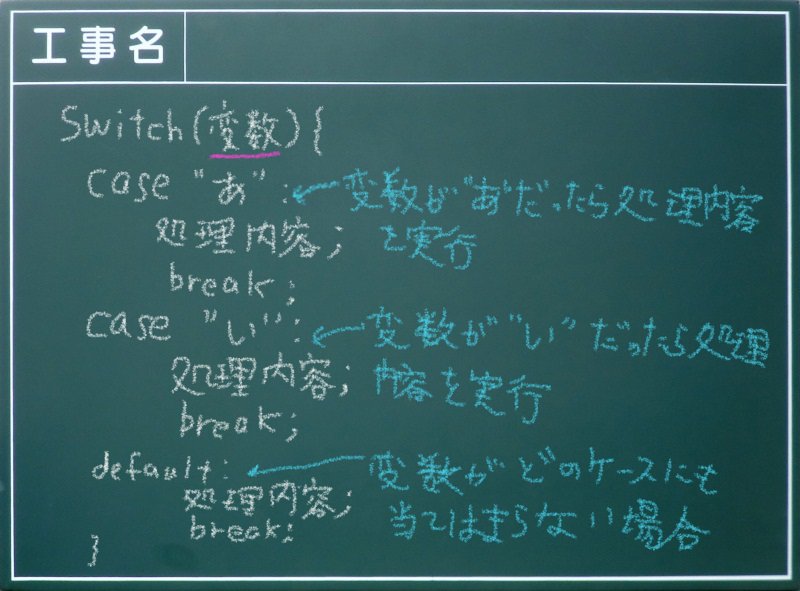 工事名
Switch(変数){
case "あ":
変数が"あ"だったら処理内容
処理内容;
を実行
break;
case "い":
変数が"い"だったら処理
処理内容;
内容を実行
break;
default:
変数がどのケースにも
処理内容;
当てはまらない場合
break;
}